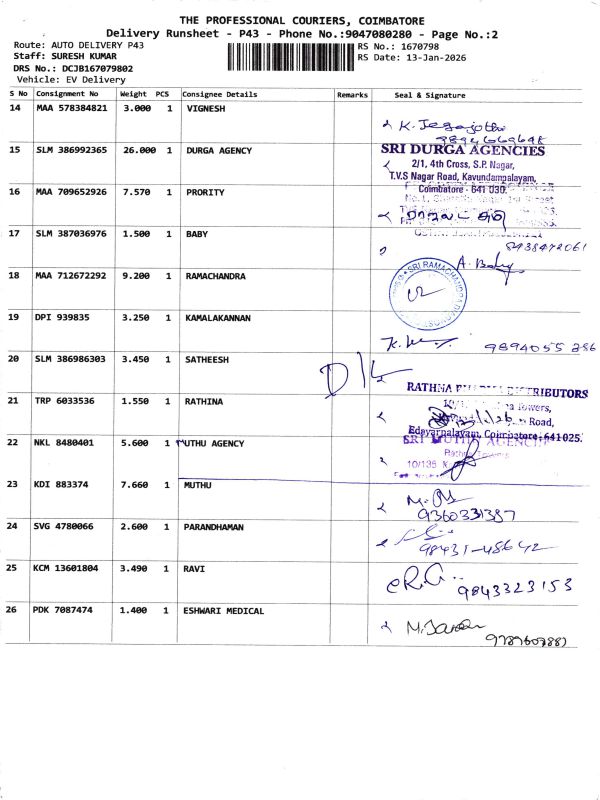 THE PROFESSIONAL COURIERS, COIMBATORE
Delivery Runsheet - P43 - Phone No.:9047080280 - Page No.:2
Route: AUTO DELIVERY P43
Staff: SURESH KUMAR
DRS No.: DCJB167079802
Vehicle: EV Delivery
RS No.: 1670798
RS Date: 13-Jan-2026
S No Consignment No Weight PCS Consignee Details Remarks Seal & Signature
14 MAA 578384821 3.000 1 VIGNESH
K. Jegajothi
15 SLM 386992365 26.000 1 DURGA AGENCY
SRI DURGA AGENCIES
2/1, 4th Cross, S.P. Nagar,
T.V.S Nagar Road, Kavundampalayam,
Coimbatore - 641 030.
16 MAA 709652926 7.570 1 PRORITY
17 SLM 387036976 1.500 1 BABY
8438472061
A. Baby
18 MAA 712672292 9.200 1 RAMACHANDRA
19 DPI 939835 3.250 1 KAMALAKANNAN
9894055286
20 SLM 386986303 3.450 1 SATHEESH
D/L
21 TRP 6033536 1.550 1 RATHINA
RATHNA PHARMA DISTRIBUTORS
Towers,
Road,
Edayarpalayam, Coimbatore-641 025.
22 NKL 8480401 5.600 1 MUTHU AGENCY
SRI MUTHU AGENCIES
10/135
23 KDI 883374 7.660 1 MUTHU
9360331387
24 SVG 4780066 2.600 1 PARANDHAMAN
98431-48642
25 KCM 13601804 3.490 1 RAVI
9843323153
26 PDK 7087474 1.400 1 ESHWARI MEDICAL